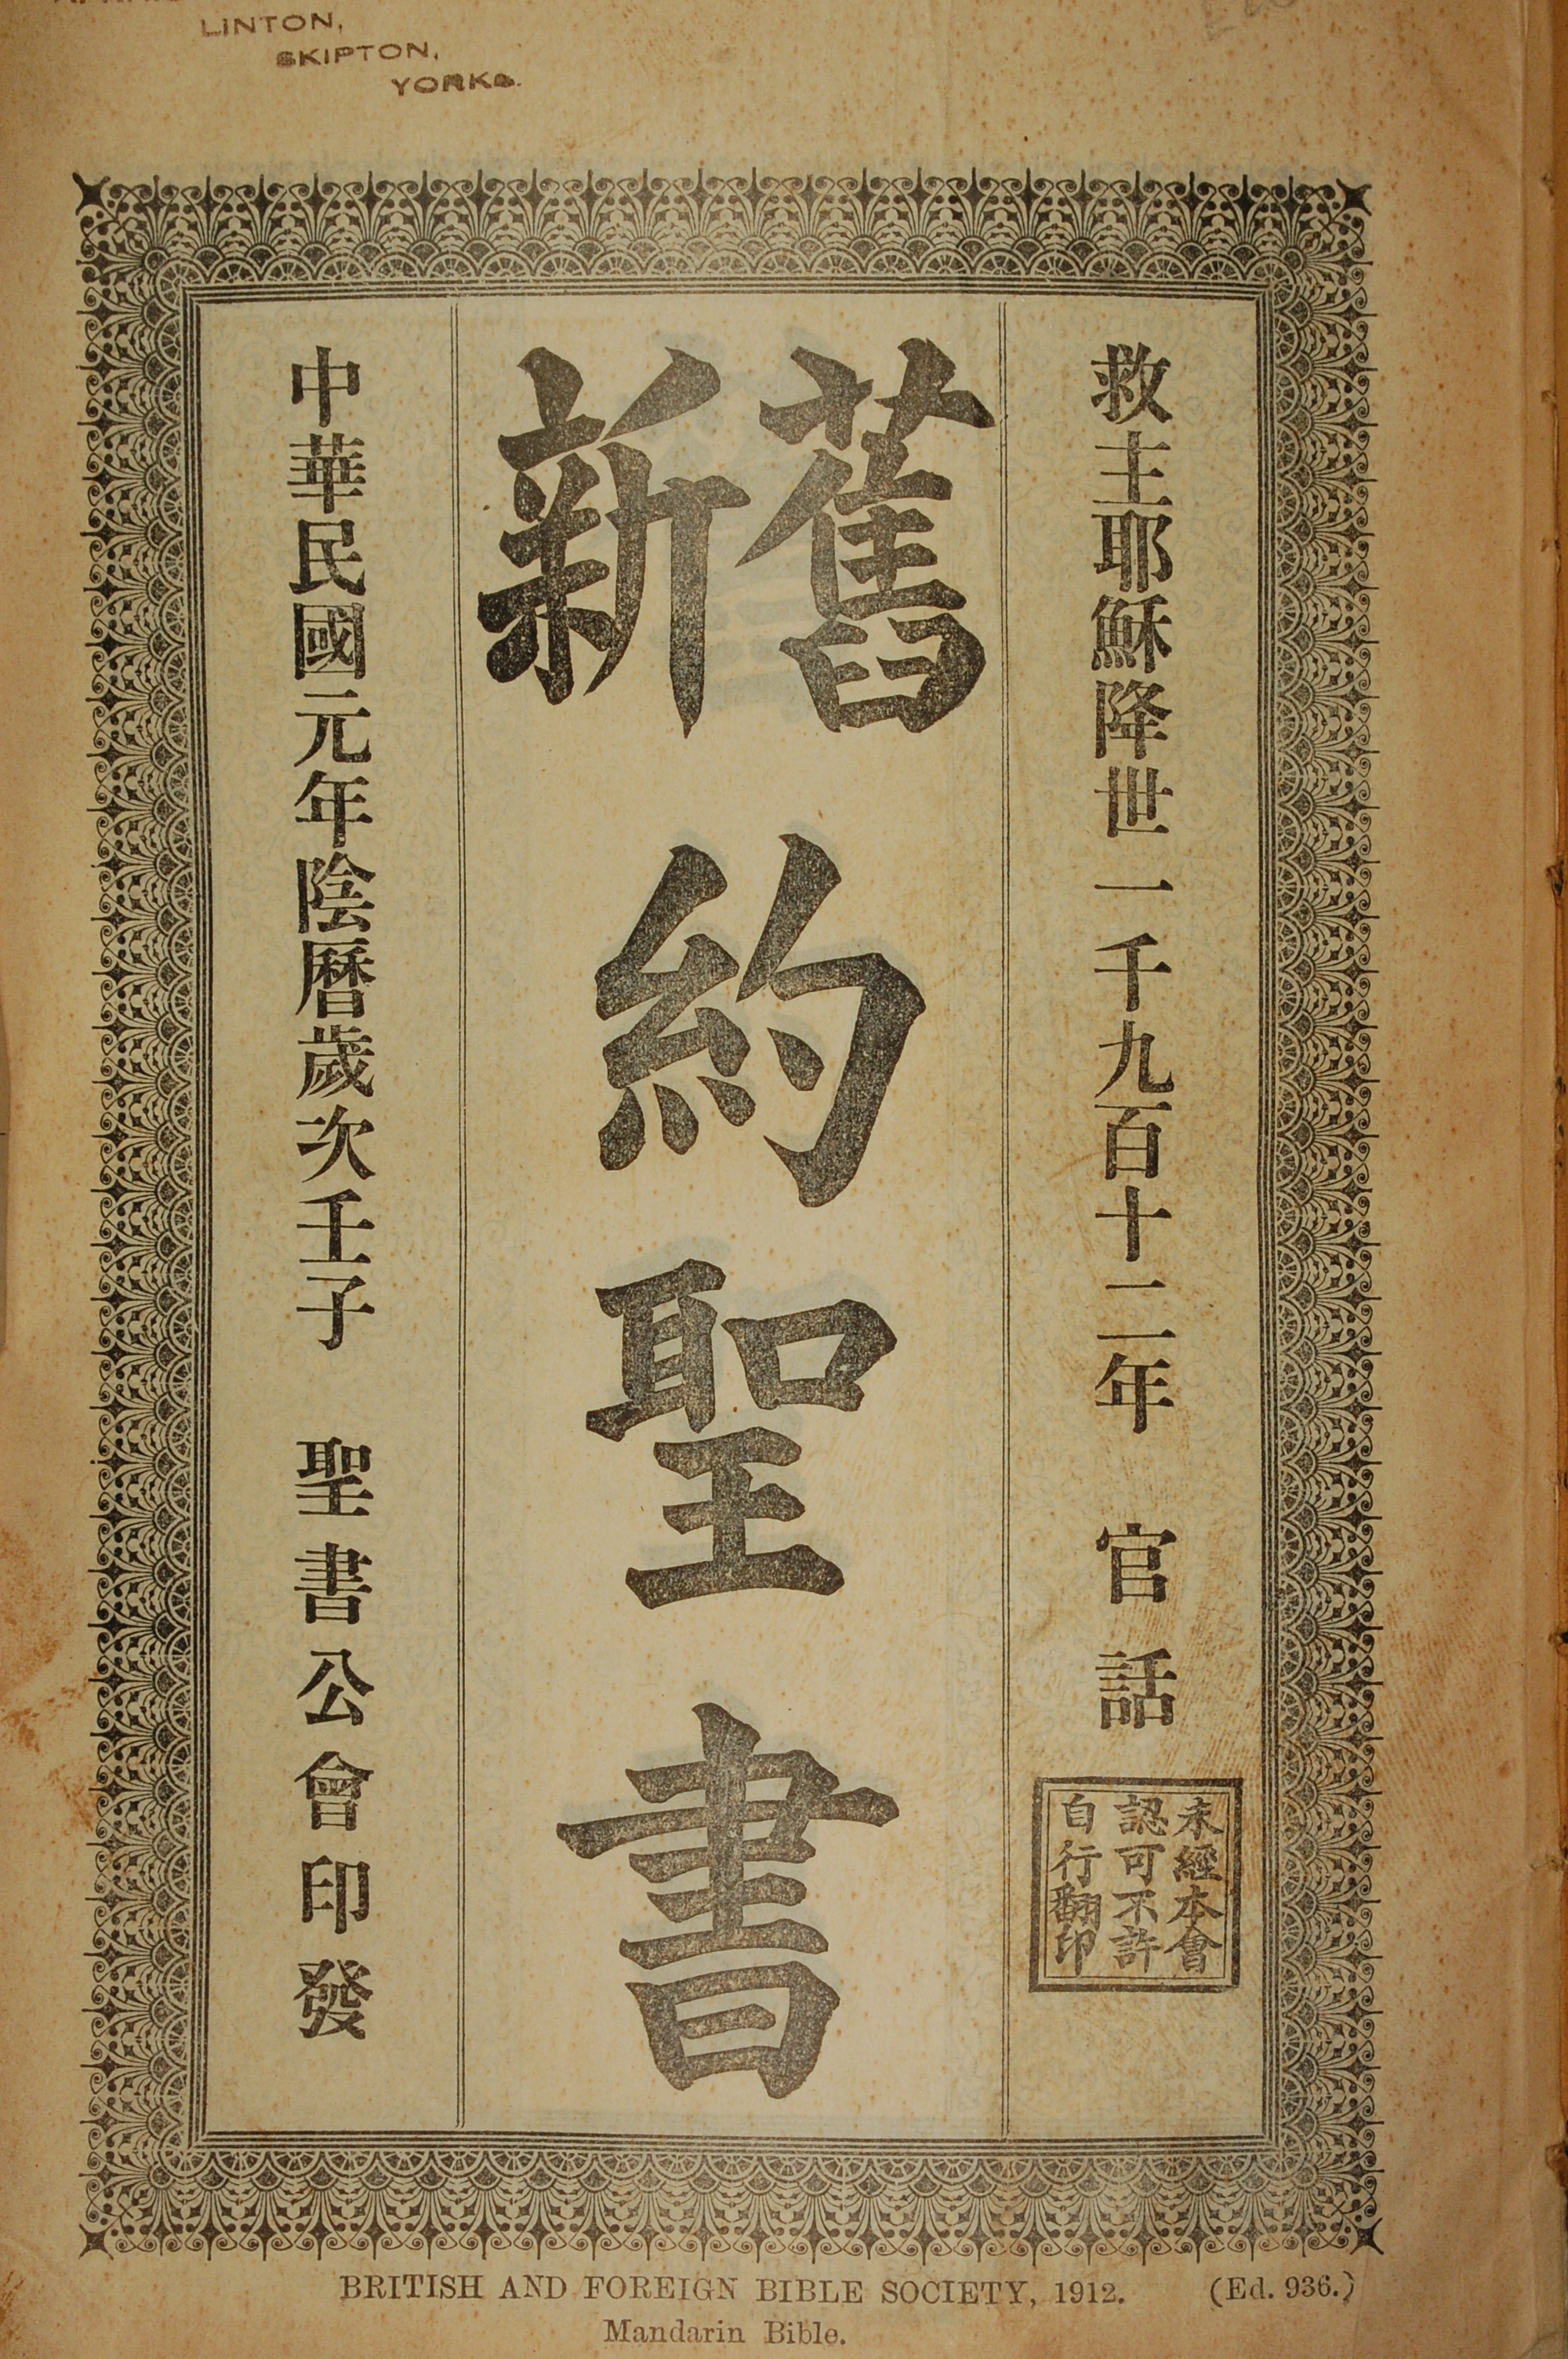 LINTON,
SKIPTON,
YORKS.
救主耶穌降世一千九百十二年 官話
未經本會
認可不許
自行翻印
舊新約聖書
中華民國元年陰曆歲次壬子 聖書公會印發
BRITISH AND FOREIGN BIBLE SOCIETY, 1912. (Ed. 936.)
Mandarin Bible.